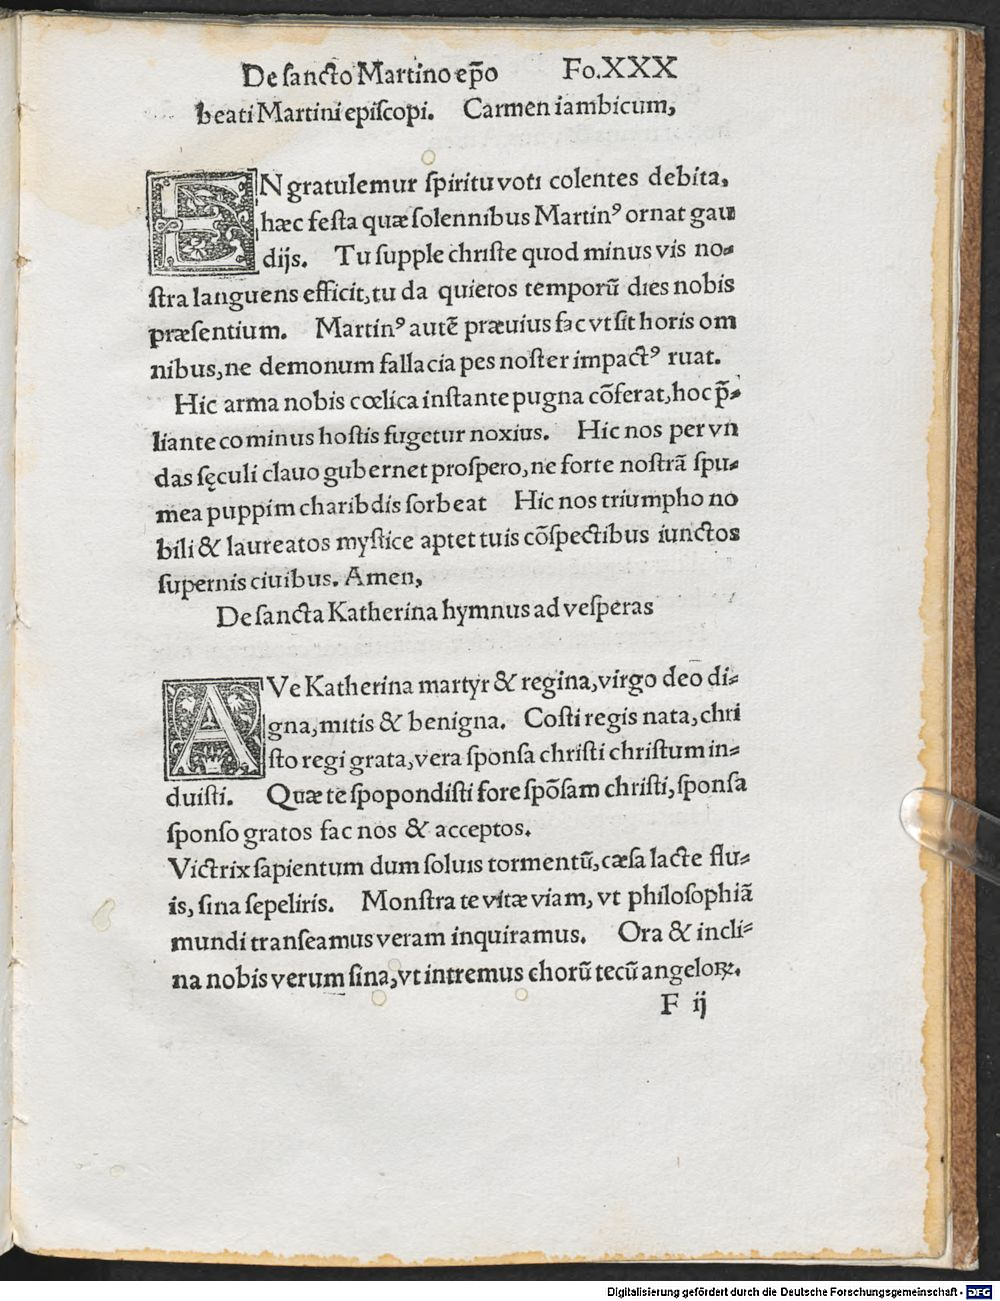 De sancto Martino ep̄o Fo.XXX
beati Martini episcopi. Carmen iambicum,
EN gratulemur spiritu voti colentes debita,
hæc festa quæ solennibus Martinꝰ ornat gau
dijs. Tu supple christe quod minus vis no-
stra languens efficit, tu da quietos temporū dies nobis
præsentium. Martinꝰ autē præuius fac vt sit horis om
nibus, ne demonum fallacia pes noster impactꝰ ruat.
Hic arma nobis cœlica instante pugna cōferat, hoc p̄-
liante cominus hostis fugetur noxius. Hic nos per vn
das sęculi clauo gubernet prospero, ne forte nostrā spu-
mea puppim charibdis sorbeat Hic nos triumpho no
bili & laureatos mystice aptet tuis cōspectibus iunctos
supernis ciuibus. Amen,
De sancta Katherina hymnus ad vesperas
AVe Katherina martyr & regina, virgo deo di-
gna, mitis & benigna. Costi regis nata, chri
sto regi grata, vera sponsa christi christum in-
duisti. Quæ te spopondisti fore spōsam christi, sponsa
sponso gratos fac nos & acceptos.
Victrix sapientum dum soluis tormentū, cæsa lacte flu-
is, sina sepeliris. Monstra te vitæ viam, vt philosophiā
mundi transeamus veram inquiramus. Ora & incli-
na nobis verum sina, vt intremus chorū tecū angeloꝝ.
F ij
Digitalisierung gefördert durch die Deutsche Forschungsgemeinschaft - DFG